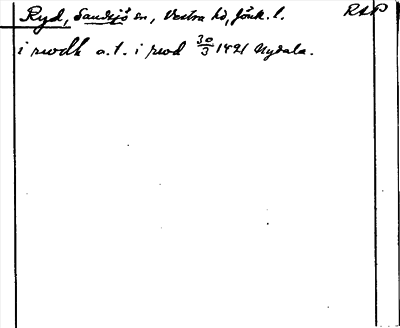 Ryd, Sandsjö sn, Västra hd, Jönk. l. RAP
i rwdh o.t. i rwd 30/3 1421 Nydala.